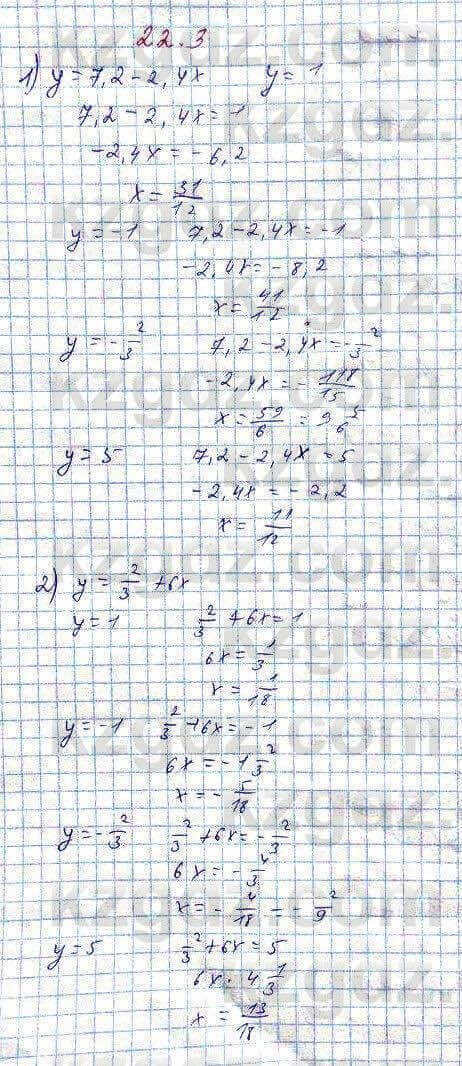 22.3
1) y = 7,2 - 2,4x y = 1
7,2 - 2,4x = 1
-2,4x = -6,2
x = 31/12
y = -1 7,2 - 2,4x = -1
-2,4x = -8,2
x = 41/12
y = -2/3 7,2 - 2,4x = -2/3
-2,4x = -118/15
x = 59/6 = 9 5/6
y = 5 7,2 - 2,4x = 5
-2,4x = -2,2
x = 11/12
2) y = 2/3 + 6x
y = 1 2/3 + 6x = 1
6x = 1/3
x = 1/18
y = -1 2/3 + 6x = -1
6x = -1 2/3
x = -5/18
y = -2/3 2/3 + 6x = -2/3
6x = -4/3
x = -4/18 = -2/9
y = 5 2/3 + 6x = 5
6x = 4 1/3
x = 13/18
kzgdz.com